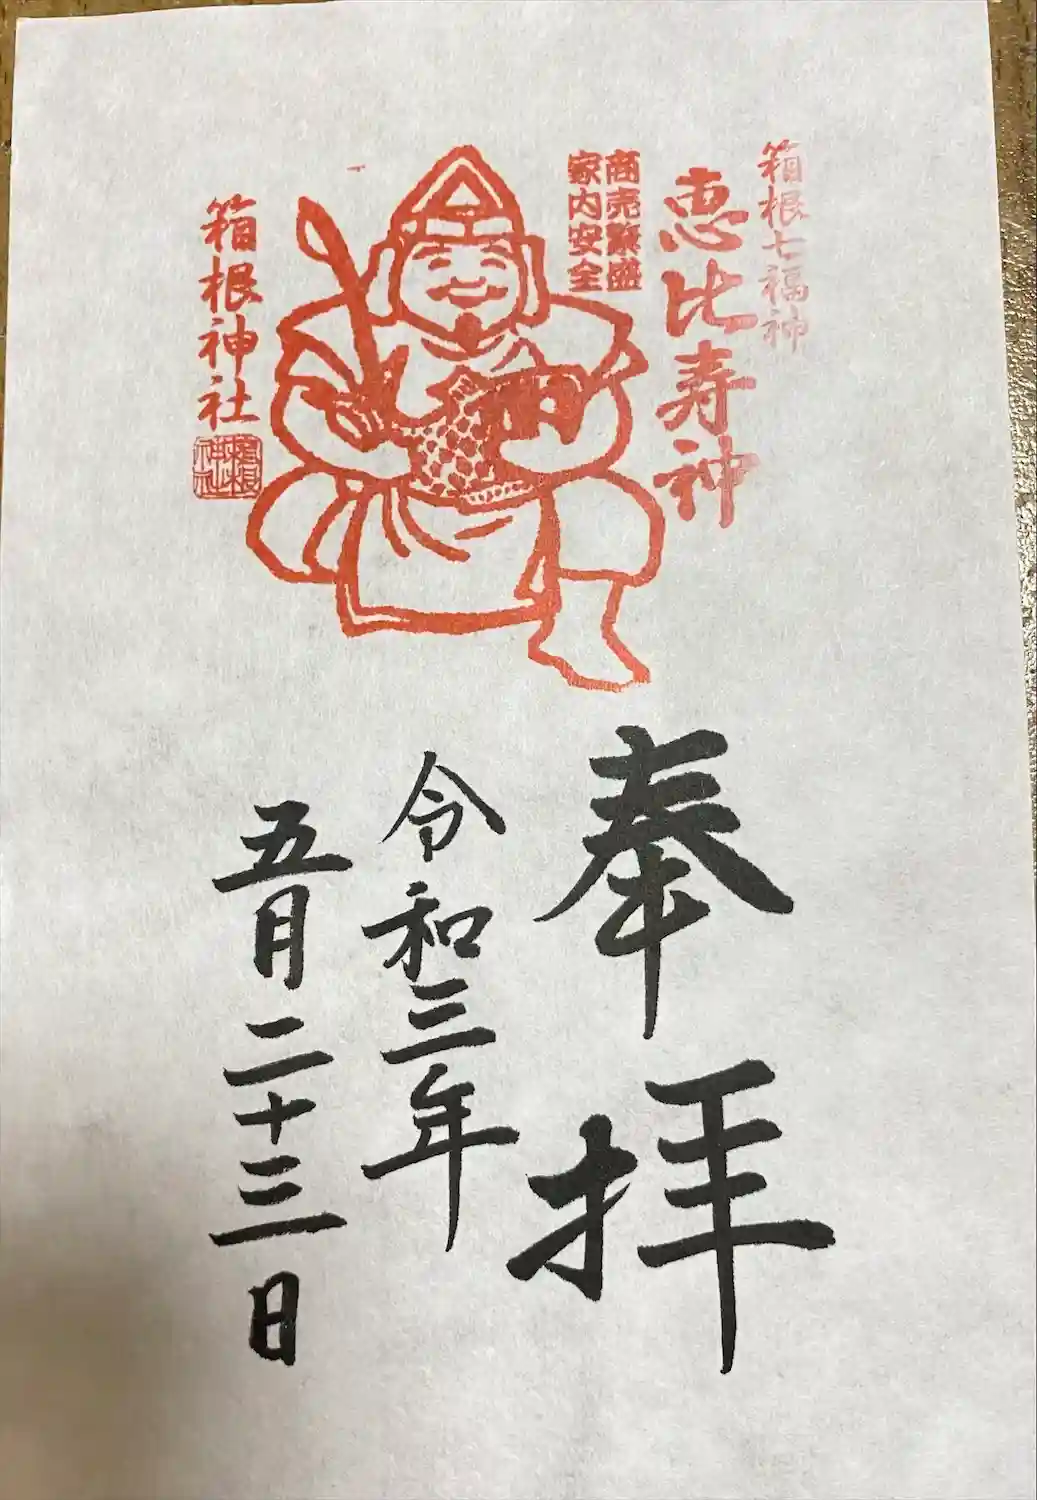 箱根七福神
恵比寿神
商売繁盛
家内安全
箱根神社
箱根
神社
奉拝
令和三年
五月二十三日